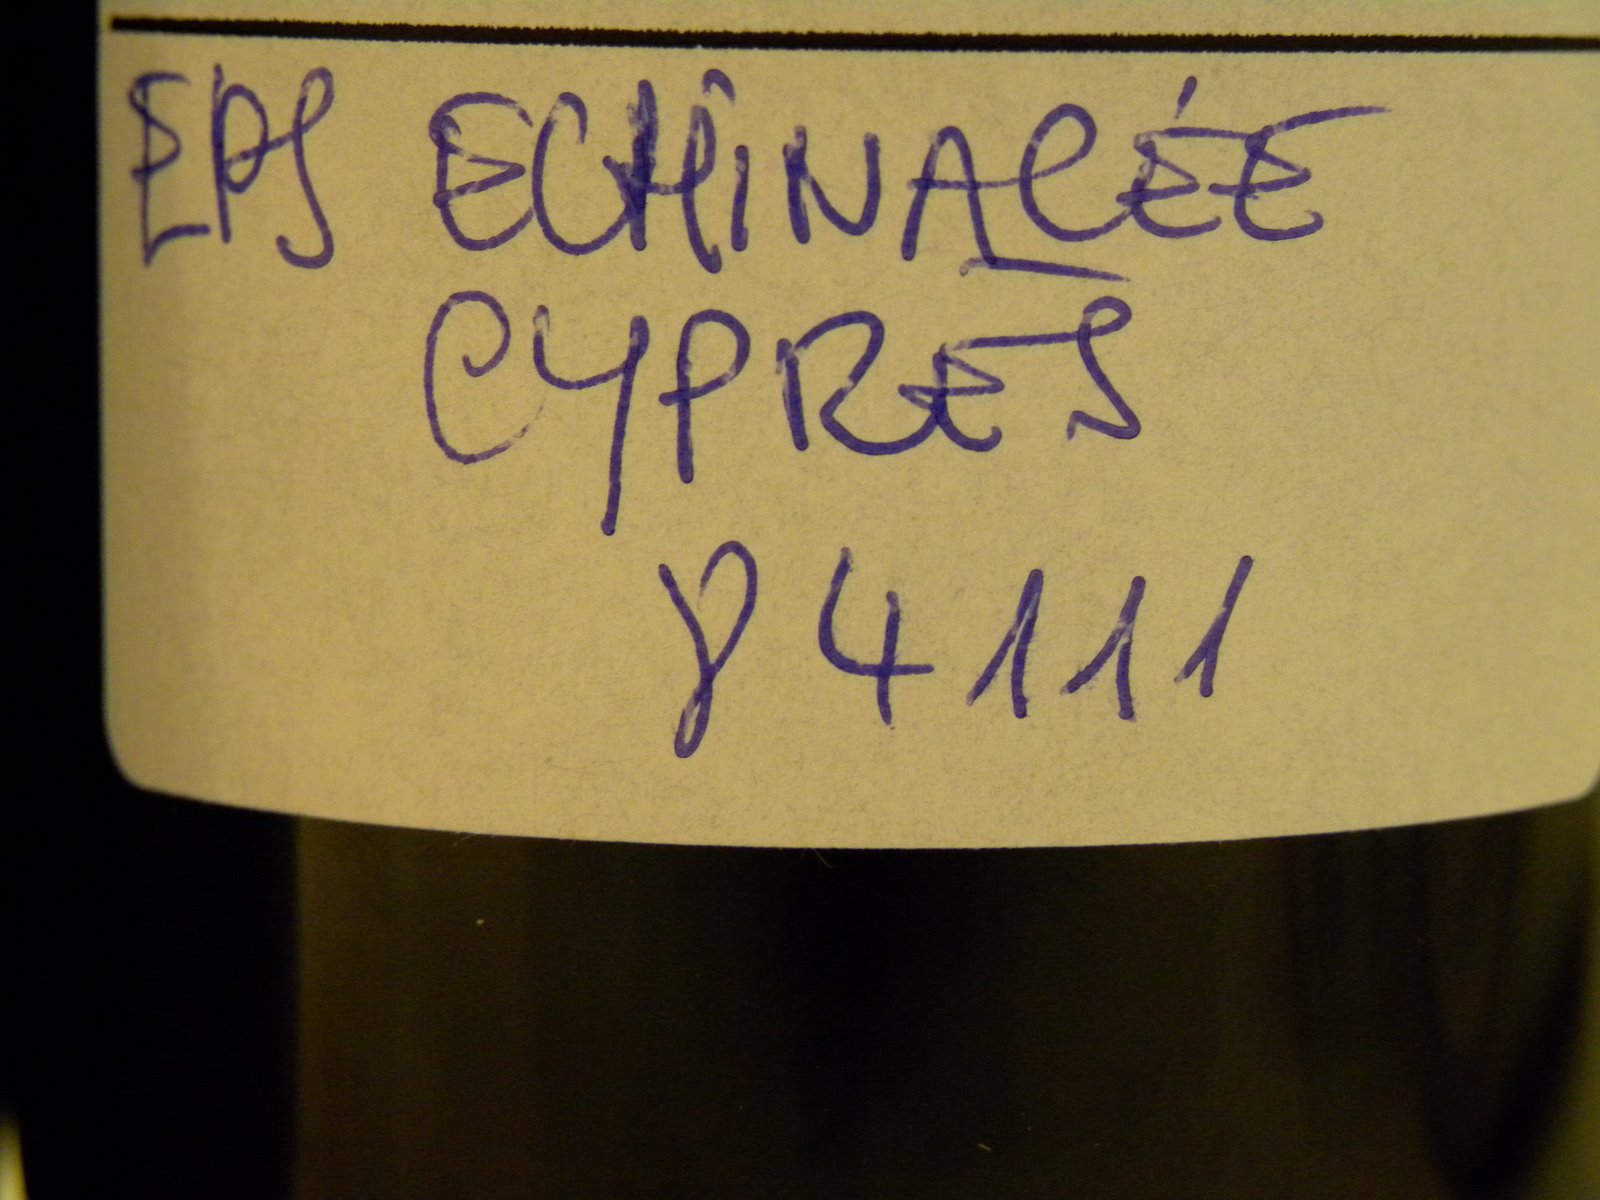 EPS ECHINACÉE
CYPRES
84111